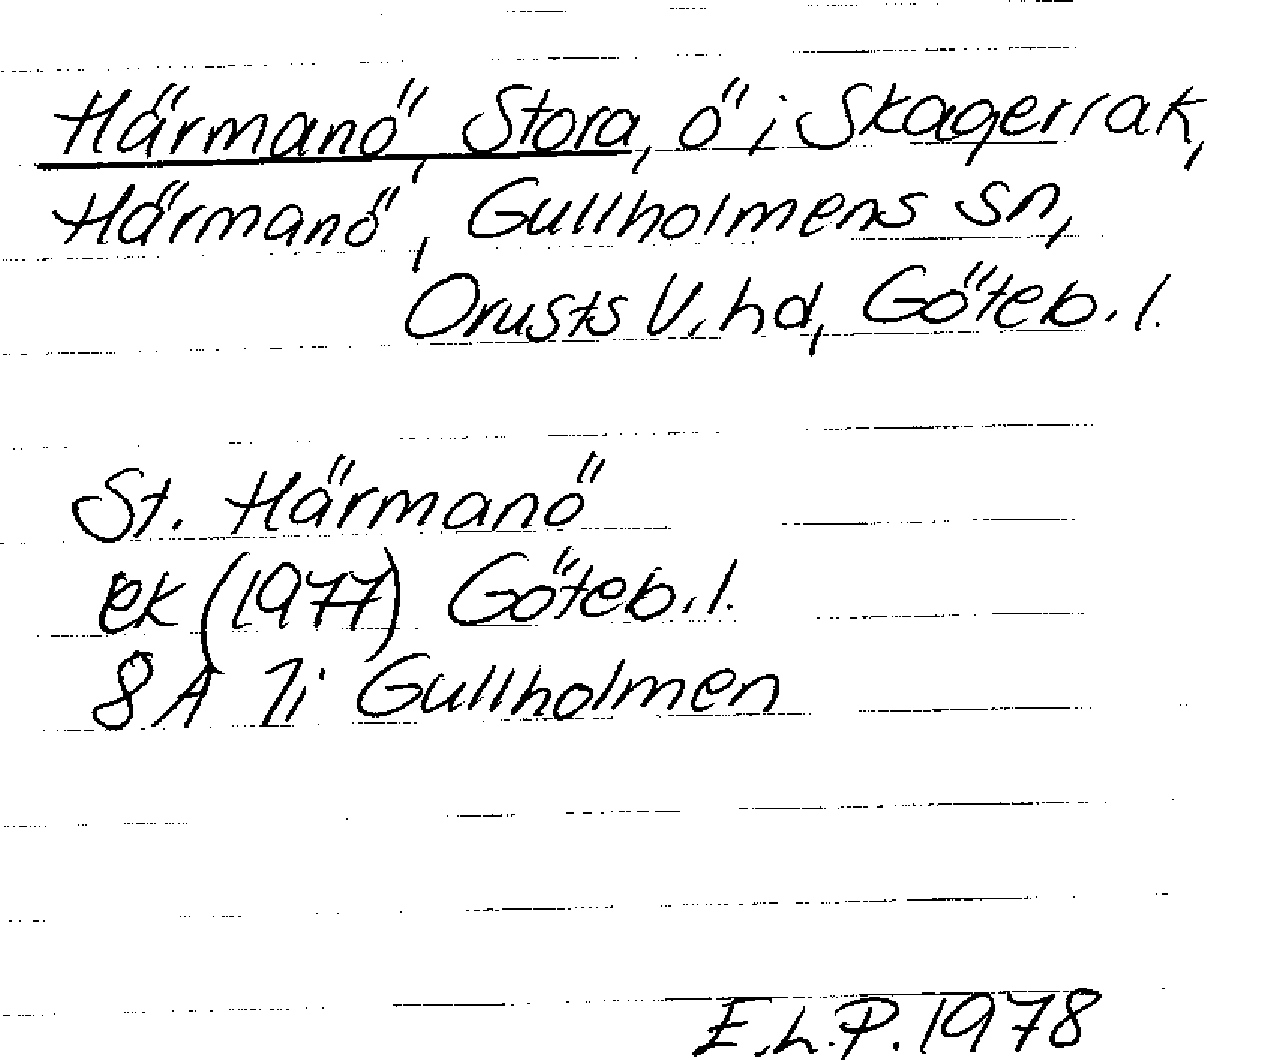 Härmanö, Stora, ö i Skagerrak,
Härmanö, Gullholmens sn,
Orusts V. hd, Göteb. l.
St. Härmanö
ek (1977) Göteb. l.
8A 7i Gullholmen
E.L.P. 1978